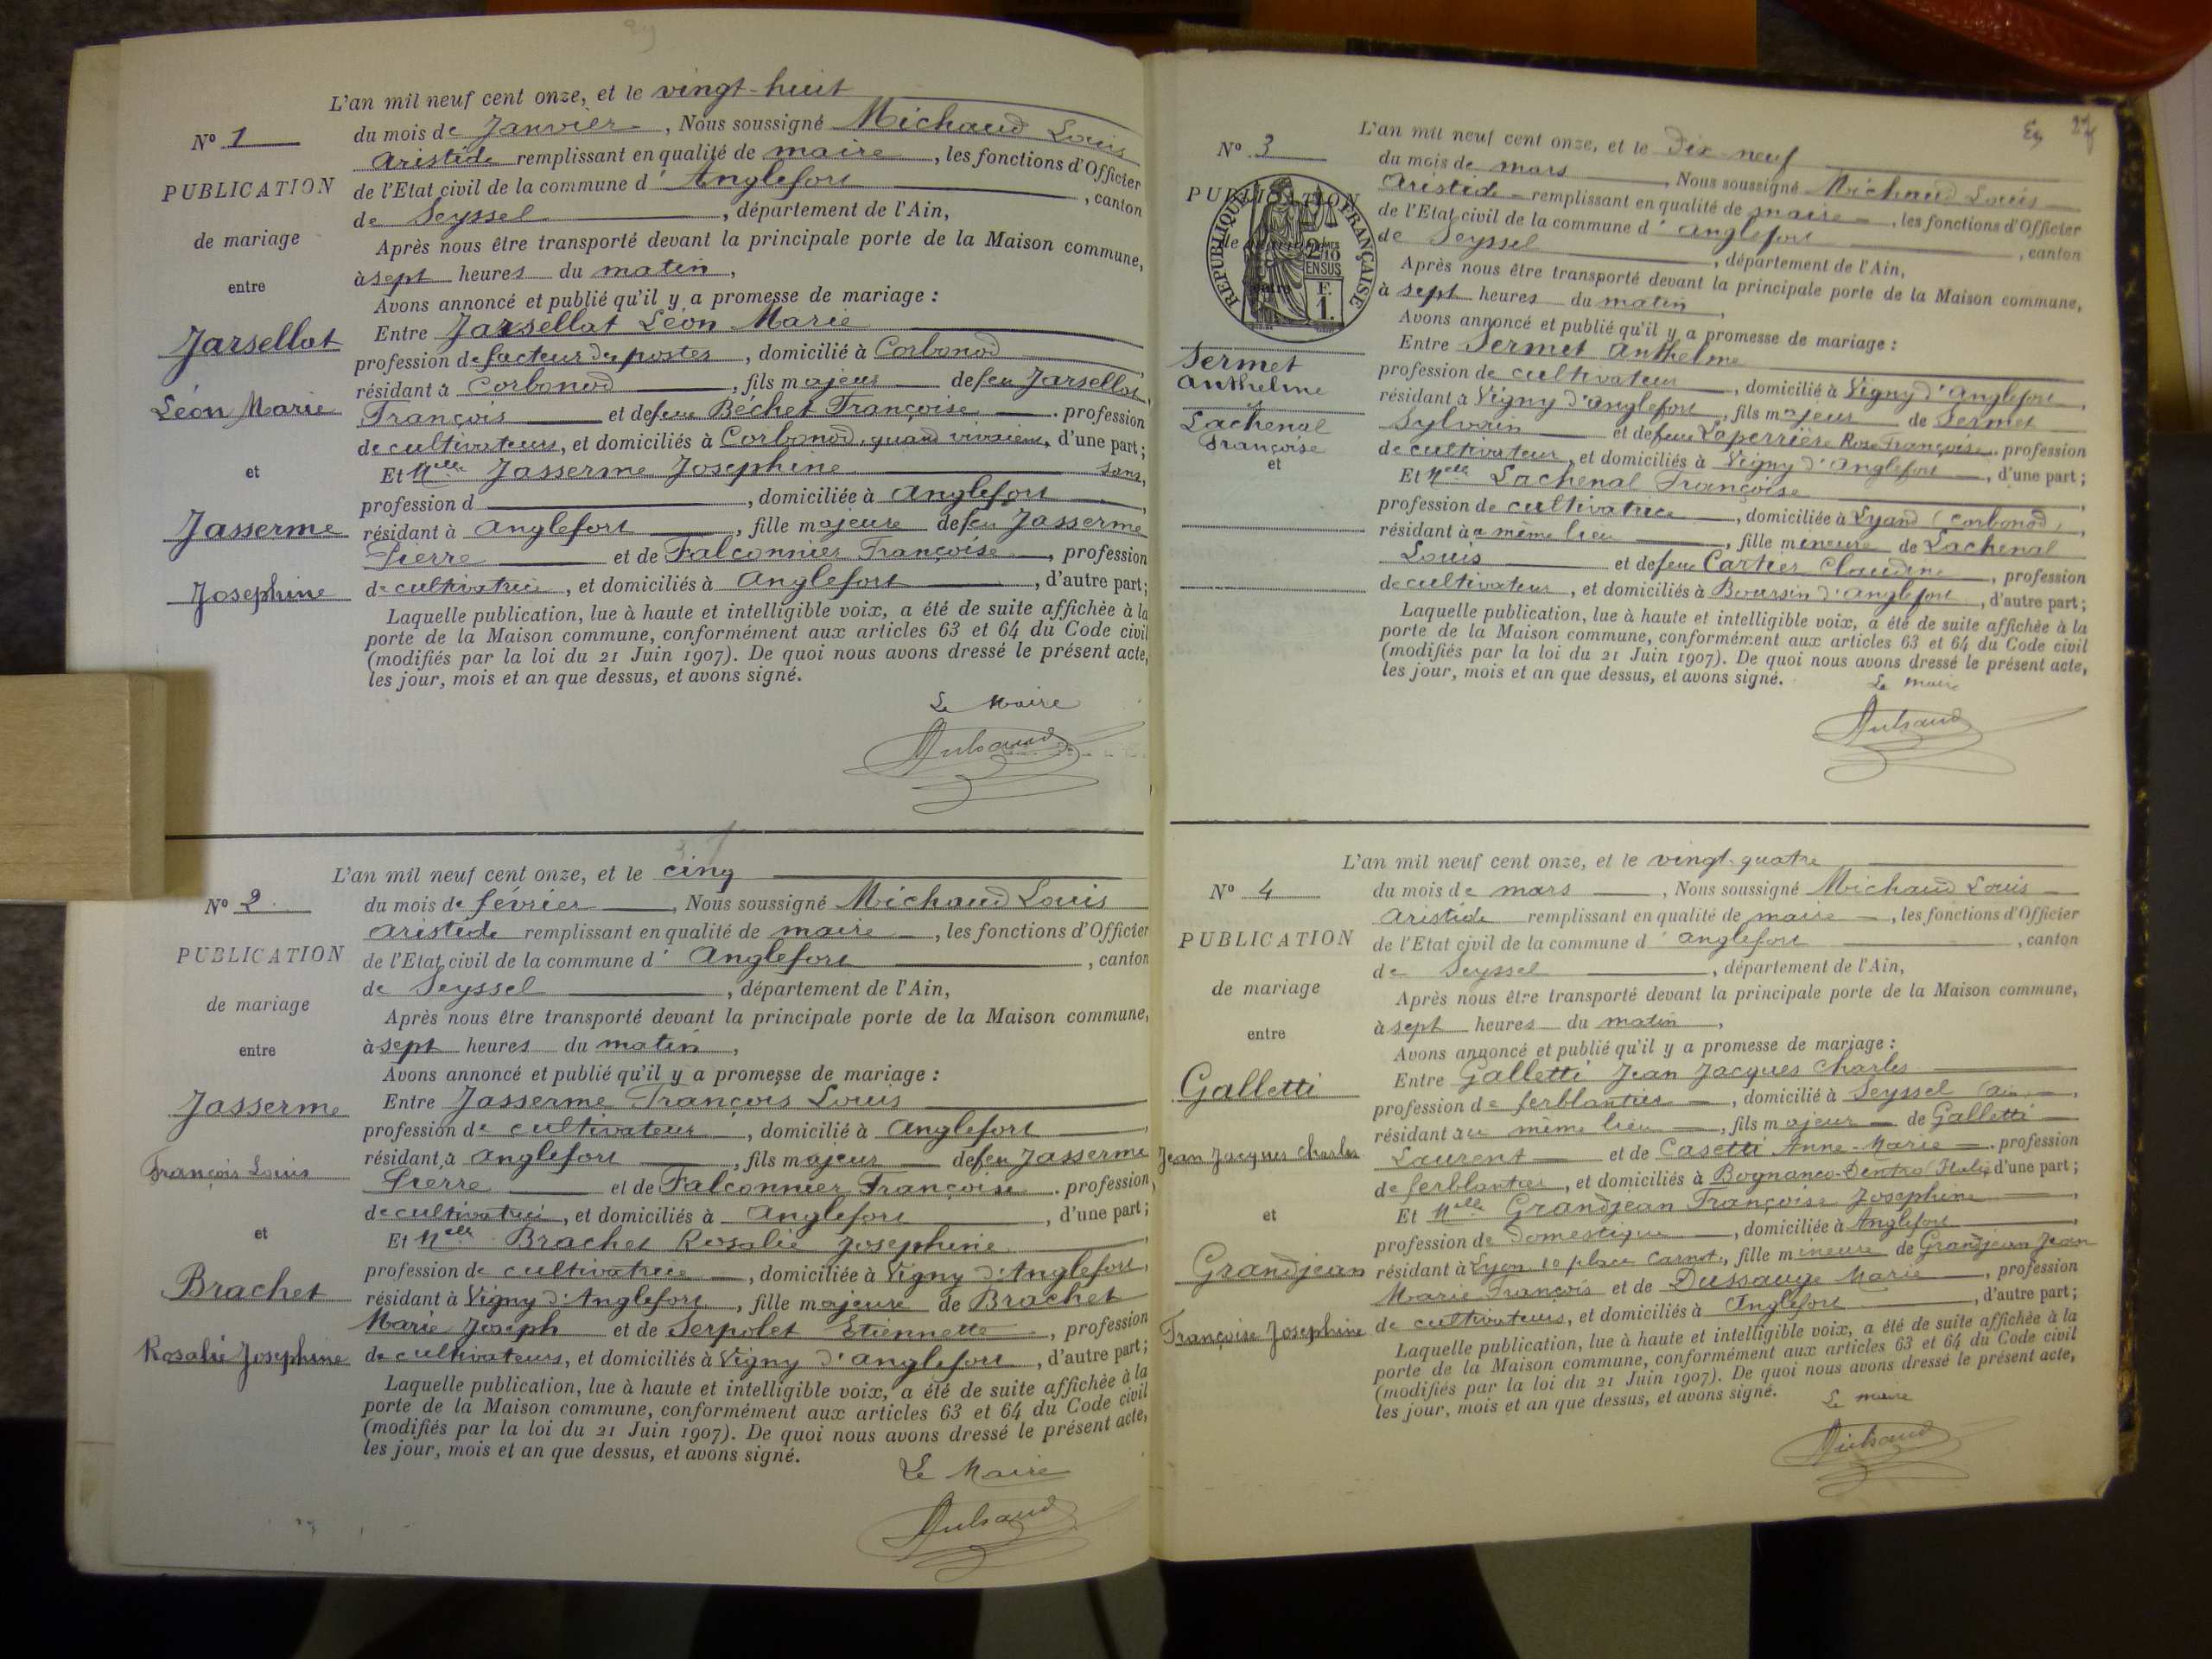 L'an mil neuf cent onze, et le vingt-huit
N° 1
du mois de Janvier, Nous soussigné Michaud Louis
Aristide remplissant en qualité de maire, les fonctions d'Officier
PUBLICATION
de l'Etat civil de la commune d'Anglefort, canton
de Seyssel, département de l'Ain,
de mariage
Après nous être transporté devant la principale porte de la Maison commune,
entre
à sept heures du matin,
Avons annoncé et publié qu'il y a promesse de mariage :
Jarsellat
Entre Jarsellat Léon Marie
profession de facteur des postes, domicilié à Corbonod
résidant à Corbonod, fils majeur de feu Jarsellat
Léon Marie
François et de feue Béchet Françoise. profession
de cultivateurs, et domiciliés à Corbonod, quand vivaient, d'une part;
et
Et Melle Jasserme Josephine sans,
profession d, domiciliée à Anglefort
Jasserme
résidant à Anglefort, fille majeure de feu Jasserme
Pierre et de Falconnier Françoise, profession
Josephine
de cultivatrice, et domiciliés à Anglefort, d'autre part;
Laquelle publication, lue à haute et intelligible voix, a été de suite affichée à la
porte de la Maison commune, conformément aux articles 63 et 64 du Code civil
(modifiés par la loi du 21 Juin 1907). De quoi nous avons dressé le présent acte,
les jour, mois et an que dessus, et avons signé.
Le Maire
Michaud
L'an mil neuf cent onze, et le cinq
N° 2
du mois de février, Nous soussigné Michaud Louis
Aristide remplissant en qualité de maire, les fonctions d'Officier
PUBLICATION
de l'Etat civil de la commune d'Anglefort, canton
de Seyssel, département de l'Ain,
de mariage
Après nous être transporté devant la principale porte de la Maison commune,
entre
à sept heures du matin,
Avons annoncé et publié qu'il y a promesse de mariage :
Jasserme
Entre Jasserme François Louis
profession de cultivateur, domicilié à Anglefort
François Louis
résidant à Anglefort, fils majeur de feu Jasserme
Pierre et de Falconnier Françoise. profession,
de cultivatrice, et domiciliés à Anglefort, d'une part;
et
Et Melle Brachet Rosalie Josephine
profession de cultivatrice, domiciliée à Vigny d'Anglefort,
Brachet
résidant à Vigny d'Anglefort, fille majeure de Brachet
Marie Joseph et de Serpolet Etiennette, profession
Rosalie Josephine
de cultivateurs, et domiciliés à Vigny d'Anglefort, d'autre part;
Laquelle publication, lue à haute et intelligible voix, a été de suite affichée à la
porte de la Maison commune, conformément aux articles 63 et 64 du Code civil
(modifiés par la loi du 21 Juin 1907). De quoi nous avons dressé le présent acte,
les jour, mois et an que dessus, et avons signé.
Le Maire
Michaud
L'an mil neuf cent onze, et le Dix-neuf
N° 3
du mois de mars, Nous soussigné Michaud Louis
PUBLICATION
RÉPUBLIQUE FRANÇAISE
2/10 EN SUS
F. 1.
Aristide remplissant en qualité de maire, les fonctions d'Officier
de l'Etat civil de la commune d'Anglefort, canton
de Seyssel, département de l'Ain,
Après nous être transporté devant la principale porte de la Maison commune,
à sept heures du matin,
Avons annoncé et publié qu'il y a promesse de mariage :
Sermet
Anthelme
Entre Sermet Anthelme
profession de cultivateur, domicilié à Vigny d'Anglefort,
résidant à Vigny d'Anglefort, fils majeur de Sermet
et
Lachenal
Françoise
Sylvain et de feue Laperrière Rose Françoise. profession
et
de cultivateur, et domiciliés à Vigny d'Anglefort, d'une part;
Et Melle Lachenal Françoise
profession de cultivatrice, domiciliée à Lyand (Corbonod),
résidant au même lieu, fille mineure de Lachenal
Louis et de feue Cartier Claudine, profession
de cultivateur, et domiciliés à Boursin d'Anglefort, d'autre part;
Laquelle publication, lue à haute et intelligible voix, a été de suite affichée à la
porte de la Maison commune, conformément aux articles 63 et 64 du Code civil
(modifiés par la loi du 21 Juin 1907). De quoi nous avons dressé le présent acte,
les jour, mois et an que dessus, et avons signé.
Le maire
Michaud
L'an mil neuf cent onze, et le vingt-quatre
N° 4
du mois de mars, Nous soussigné Michaud Louis
Aristide remplissant en qualité de maire, les fonctions d'Officier
PUBLICATION
de l'Etat civil de la commune d'Anglefort, canton
de Seyssel, département de l'Ain,
de mariage
Après nous être transporté devant la principale porte de la Maison commune,
entre
à sept heures du matin,
Avons annoncé et publié qu'il y a promesse de mariage :
Galletti
Entre Galletti Jean Jacques Charles
profession de ferblantier, domicilié à Seyssel (Ain),
Jean Jacques Charles
résidant au même lieu, fils majeur de Galletti
Laurent et de Casetti Anne-Marie. profession
de ferblantier, et domiciliés à Bognanco-Dentro (Italie) d'une part;
et
Et Melle Grandjean Françoise Josephine
profession de Domestique, domiciliée à Anglefort
Grandjean
résidant à Lyon 10 place Carnot, fille mineure de Grandjean Jean
Marie François et de Dussauge Marie, profession
Françoise Josephine
de cultivateurs, et domiciliés à Anglefort, d'autre part;
Laquelle publication, lue à haute et intelligible voix, a été de suite affichée à la
porte de la Maison commune, conformément aux articles 63 et 64 du Code civil
(modifiés par la loi du 21 Juin 1907). De quoi nous avons dressé le présent acte,
les jour, mois et an que dessus, et avons signé.
Le maire
Michaud